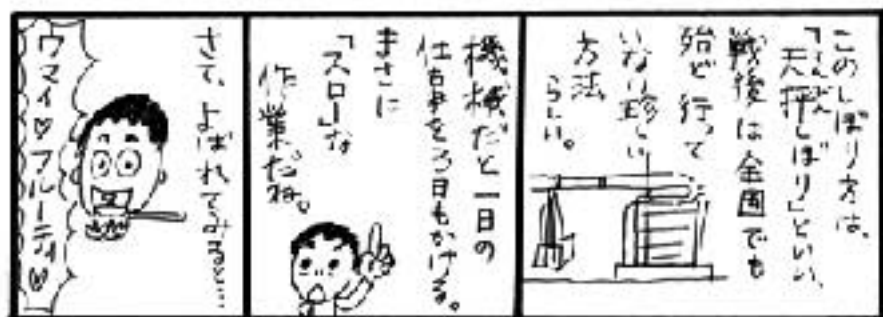 このしぼり方は、
「天秤しぼり」といい、
てんびん
戦後は全国でも
殆ど行って
いない珍しい
方法
らしい。
機械だと一日の
仕事を3日もかける。
まさに
「スロー」な
作業だね。
さて、よばれてみると…
ウマイ♡フルーティ♡